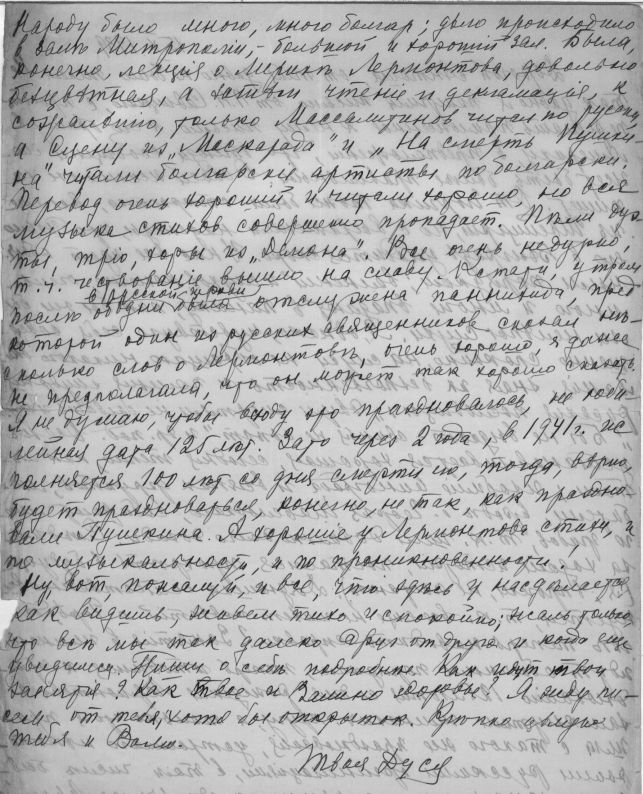 Народу было много, много болгар; дѣло происходило
въ залѣ Митрополіи, – большой и хорошій зал. Была
конечно, лекція о Лирикѣ Лермонтова, довольно
безцвѣтная, а затѣм чтеніе и декламація, к
сожалѣнію, только Массалитинов читал по русски,
а Сцену из „Маскарада" и „На смерть Пушки-
на" читали болгарскіе артисты по болгарски.
Перевод очень хорошій и читали хорошо, но вся
музыка стихов совершенно пропадает. Пѣли дуэ-
ты, тріо, хоры из „Демона". Все очень недурно,
т.ч. чествованіе вышло на славу. Кстати, утром
в русской церкви
послѣ обѣдни была отслужена паннихида пред
которой один из русских священников сказал нѣ-
сколько слов о Лермонтовѣ, очень хорошо, я даже
не предполагала, что он может так хорошо сказать.
Я не думаю, чтобы всюду это праздновалось, не юби-
лейная дата 125 лѣт. Зато через 2 года, в 1941 г. ис-
полняется 100 лѣт со дня смерти его, тогда, вѣрно,
будет праздноваться, конечно, не так, как праздно-
вали Пушкина. А хорошіе у Лермонтова стихи, и
по музыкальности, и по проникновенности.
Ну, вот, пожалуй, и все, что здѣсь у нас дѣлается
как видишь, живем тихо и спокойно, жаль только,
что всѣ мы так далеко друг от друга и когда еще
увидимся. Пиши о себѣ подробнѣе. Как идут твои
занятія? Как твое и Валино здоровье? Я жду пи-
сем от тебя, хотя бы открыток. Крѣпко цѣлую
тебя и Валю.
Твоя Дуся